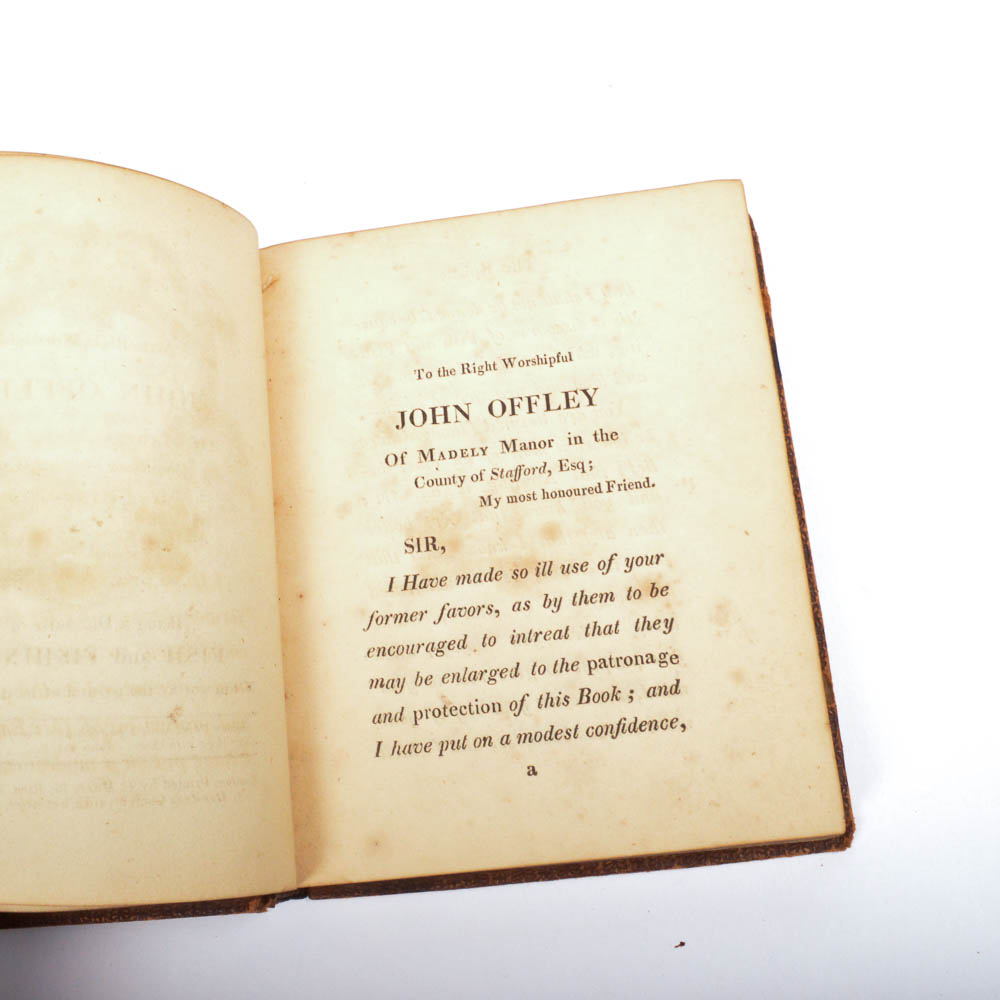 To the Right Worshipful
JOHN OFFLEY
Of MADELY Manor in the
County of Stafford, Esq;
My most honoured Friend.
SIR,
I Have made so ill use of your
former favors, as by them to be
encouraged to intreat that they
may be enlarged to the patronage
and protection of this Book; and
I have put on a modest confidence,
a